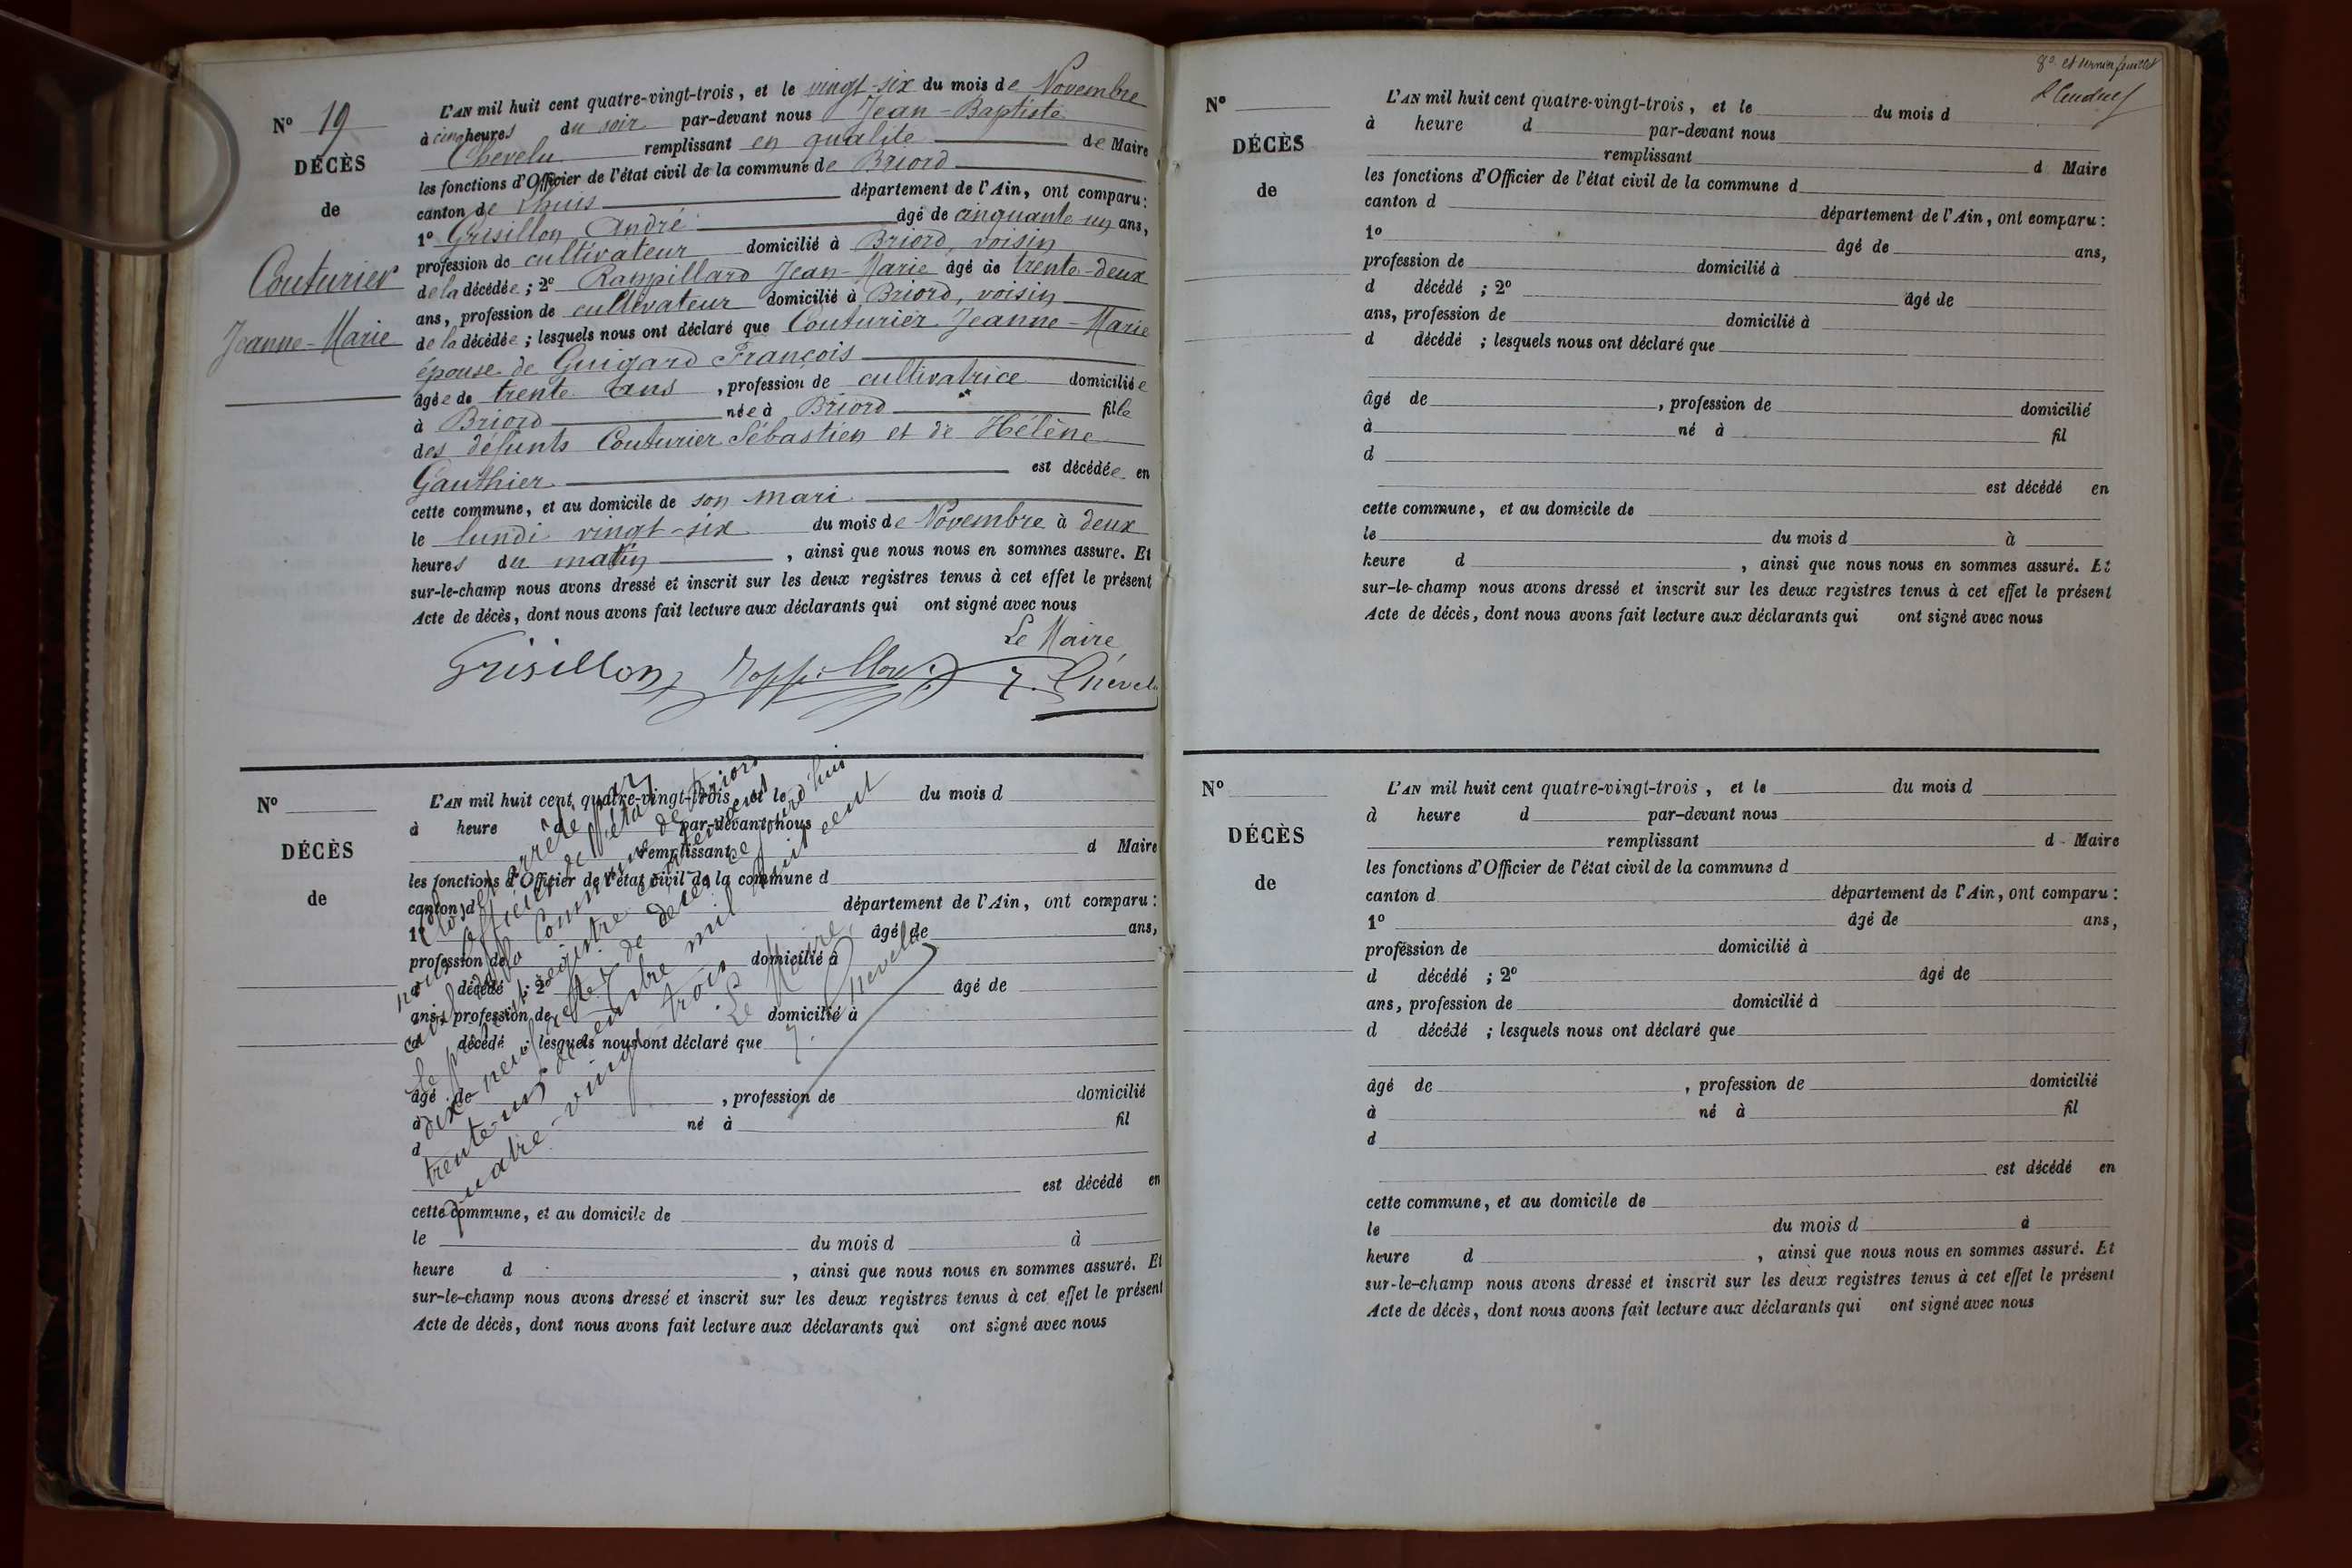 N° 19
DÉCÈS
de
Couturier
Jeanne-Marie
L'AN mil huit cent quatre-vingt-trois, et le vingt-six du mois de Novembre
à cinq heures du soir par-devant nous Jean-Baptiste
Chevelu remplissant en qualité de Maire
les fonctions d'Officier de l'état civil de la commune de Briord
canton de Lhuis département de l'Ain, ont comparu:
1° Grisillon André âgé de cinquante-un ans,
profession de cultivateur domicilié à Briord, voisin
de la décédée; 2° Rappillard Jean-Marie âgé de trente-deux
ans, profession de cultivateur domicilié à Briord, voisin
de la décédée; lesquels nous ont déclaré que Couturier Jeanne-Marie
épouse de Guigard François
âgée de trente ans, profession de cultivatrice domiciliée
à Briord née à Briord fille
des défunts Couturier Sébastien et de Hélène
Gauthier est décédée en
cette commune, et au domicile de son mari
le lundi vingt-six du mois de Novembre à deux
heures du matin, ainsi que nous nous en sommes assuré. Et
sur-le-champ nous avons dressé et inscrit sur les deux registres tenus à cet effet le présent
Acte de décès, dont nous avons fait lecture aux déclarants qui ont signé avec nous
Le Maire
Grisillon Rappillard J. Chevelu
N°
DÉCÈS
de
L'AN mil huit cent quatre-vingt-trois, et le du mois d
à heure d par-devant nous
remplissant d Maire
les fonctions d'Officier de l'état civil de la commune d
canton d département de l'Ain, ont comparu:
1° âgé de ans,
profession de domicilié à
d décédé; 2° âgé de
ans, profession de domicilié à
d décédé; lesquels nous ont déclaré que
âgé de, profession de domicilié
à né à fil
d
est décédé en
cette commune, et au domicile de
le du mois d à
heure d, ainsi que nous nous en sommes assuré. Et
sur-le-champ nous avons dressé et inscrit sur les deux registres tenus à cet effet le présent
Acte de décès, dont nous avons fait lecture aux déclarants qui ont signé avec nous
Clos et arrêté par
nous officier de l'état
civil de la Commune de Briord
le présent registre contenant
dix-neuf actes de décès ce jourd'hui
trente-un décembre mil huit cent
quatre-vingt-trois
Le Maire,
J. Chevelu
8e et dernier feuillet
N°
DÉCÈS
de
L'AN mil huit cent quatre-vingt-trois, et le du mois d
à heure d par-devant nous
remplissant d Maire
les fonctions d'Officier de l'état civil de la commune d
canton d département de l'Ain, ont comparu:
1° âgé de ans,
profession de domicilié à
d décédé; 2° âgé de
ans, profession de domicilié à
d décédé; lesquels nous ont déclaré que
âgé de, profession de domicilié
à né à fil
d
est décédé en
cette commune, et au domicile de
le du mois d à
heure d, ainsi que nous nous en sommes assuré. Et
sur-le-champ nous avons dressé et inscrit sur les deux registres tenus à cet effet le présent
Acte de décès, dont nous avons fait lecture aux déclarants qui ont signé avec nous
N°
DÉCÈS
de
L'AN mil huit cent quatre-vingt-trois, et le du mois d
à heure d par-devant nous
remplissant d Maire
les fonctions d'Officier de l'état civil de la commune d
canton d département de l'Ain, ont comparu:
1° âgé de ans,
profession de domicilié à
d décédé; 2° âgé de
ans, profession de domicilié à
d décédé; lesquels nous ont déclaré que
âgé de, profession de domicilié
à né à fil
d
est décédé en
cette commune, et au domicile de
le du mois d à
heure d, ainsi que nous nous en sommes assuré. Et
sur-le-champ nous avons dressé et inscrit sur les deux registres tenus à cet effet le présent
Acte de décès, dont nous avons fait lecture aux déclarants qui ont signé avec nous